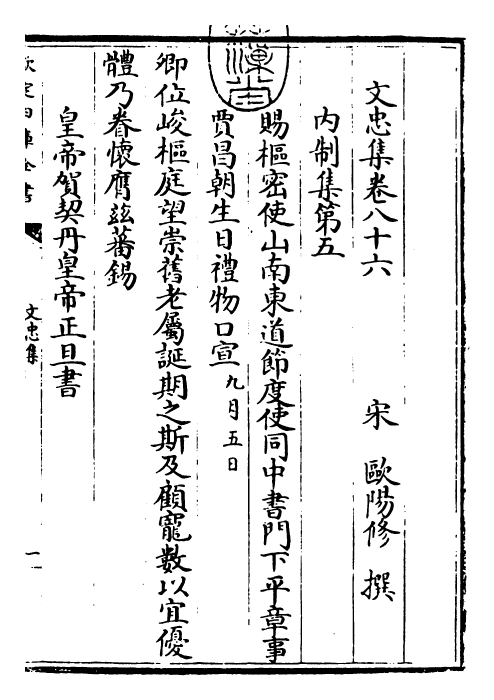 文忠集卷八十六
宋 歐陽修 撰
内制集第五
賜樞密使山南東道節度使同中書門下平章事
賈昌朝生日禮物口宣九月五日
卿位峻樞庭望崇舊老屬誕期之斯及顧寵數以宜優
體乃眷懷膺兹蕃錫
皇帝賀契丹皇帝正旦書
欽定四庫全書
文忠集
一